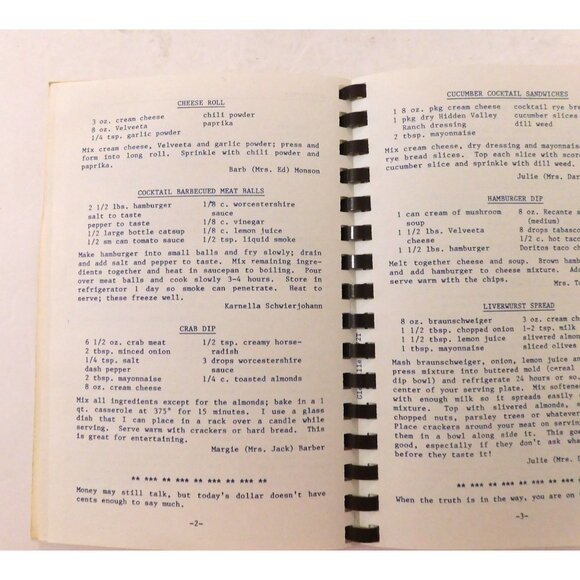 CHEESE ROLL
3 oz. cream cheese chili powder
8 oz. Velveeta paprika
1/4 tsp. garlic powder
Mix cream cheese, Velveeta and garlic powder; press and
form into long roll. Sprinkle with chili powder and
paprika.
Barb (Mrs. Ed) Monson
COCKTAIL BARBECUED MEAT BALLS
2 1/2 lbs. hamburger 1/8 c. worcestershire
salt to taste sauce
pepper to taste 1/8 c. vinegar
1/2 large bottle catsup 1/8 c. lemon juice
1/2 sm can tomato sauce 1/2 tsp. liquid smoke
Make hamburger into small balls and fry slowly; drain
and add salt and pepper to taste. Mix remaining ingre-
dients together and heat in saucepan to boiling. Pour
over meat balls and cook slowly 3-4 hours. Store in
refrigerator 1 day so smoke can penetrate. Heat to
serve; these freeze well.
Karnella Schwierjohann
CRAB DIP
6 1/2 oz. crab meat 1/2 tsp. creamy horse-
2 tbsp. minced onion radish
1/4 tsp. salt 3 drops worcestershire
dash pepper sauce
2 tbsp. mayonnaise 1/4 c. toasted almonds
8 oz. cream cheese
Mix all ingredients except for the almonds; bake in a 1
qt. casserole at 375° for 15 minutes. I use a glass
dish that I can place in a rack over a candle while
serving. Serve warm with crackers or hard bread. This
is great for entertaining.
Margie (Mrs. Jack) Barber
** *** *** *** ** *** *** *** **
Money may still talk, but today's dollar doesn't have
cents enough to say much.
-2-
CUCUMBER COCKTAIL SANDWICHES
1 8 oz. pkg cream cheese cocktail rye bre
1 pkg dry Hidden Valley cucumber slices
Ranch dressing dill weed
2 tbsp. mayonnaise
Mix cream cheese, dry dressing and mayonnai
rye bread slices. Top each slice with scor
cucumber slice and sprinkle with dill weed.
Julie (Mrs. Dar
HAMBURGER DIP
1 can cream of mushroom 8 oz. Recante s
soup (medium)
1 1/2 lbs. Velveeta 8 drops tabasc
cheese 1/2 c. hot tac
1 1/2 lbs. hamburger Doritos taco ch
Melt together cheese and soup. Brown hamb
and add hamburger to cheese mixture. Add
serve warm with the chips.
Mrs. T
LIVERWURST SPREAD
8 oz. braunschweiger 3 oz. cream ch
1 1/2 tbsp. chopped onion 1-2 tsp. milk
1 1/2 tbsp. lemon juice slivered almon
1 tbsp. mayonnaise sliced olives
Mash braunschweiger, onion, lemon juice a
press mixture into buttered mold (cereal
dip bowl) and refrigerate 24 hours or so.
center of your serving plate. Mix softene
with enough milk so it spreads easily
mixture. Top with slivered almonds, s
chopped nuts, parsley trees or whatever
Place crackers around your meat on serving
them in a bowl along side it. This goe
good, especially if they don't ask wha
before they taste it!
Julie (Mrs. D
** *** *** *** ** *** *** ***
When the truth is in the way, you are on
-3-